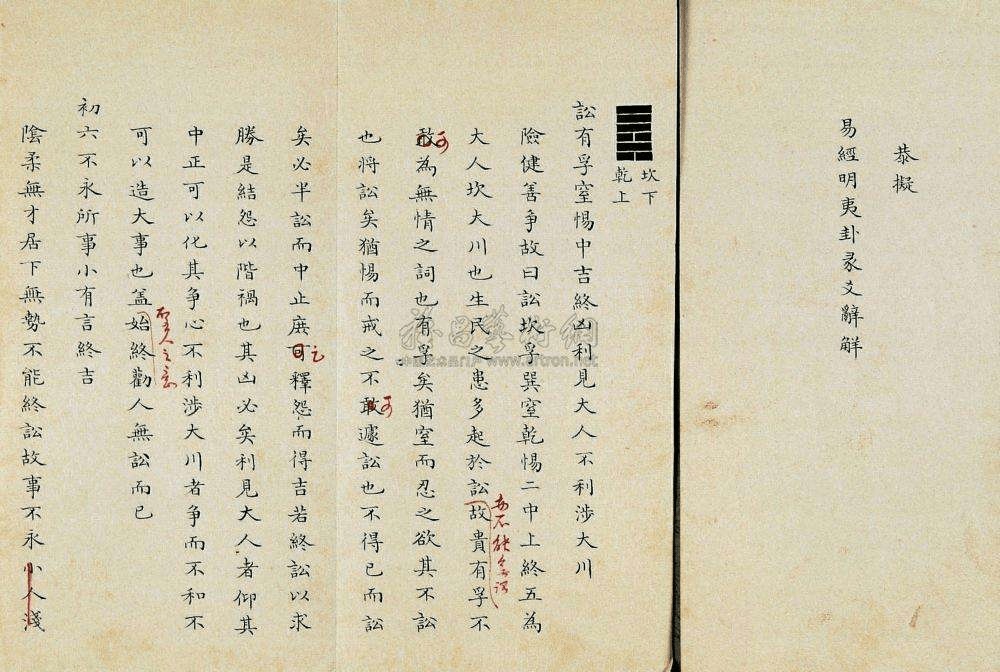 恭擬
易經明夷卦彖爻辭解
坎下
乾上
訟有孚窒惕中吉終凶利見大人不利涉大川
險健善爭故曰訟坎孚巽窒乾惕二中上終五為
大人坎大川也生民之患多起於訟故貴有孚不
敢為無情之詞也有孚矣猶窒而忍之欲其不訟
可
也將訟矣猶惕而戒之不敢遽訟也不得已而訟
可
矣必半訟而中止庶可釋怨而得吉若終訟以求
勝是結怨以階禍也其凶必矣利見大人者仰其
中正可以化其爭心不利涉大川者爭而不和不
可以造大事也蓋始終勸人無訟而已
聖人之意
初六不永所事小有言終吉
陰柔無才居下無勢不能終訟故事不永小人淺